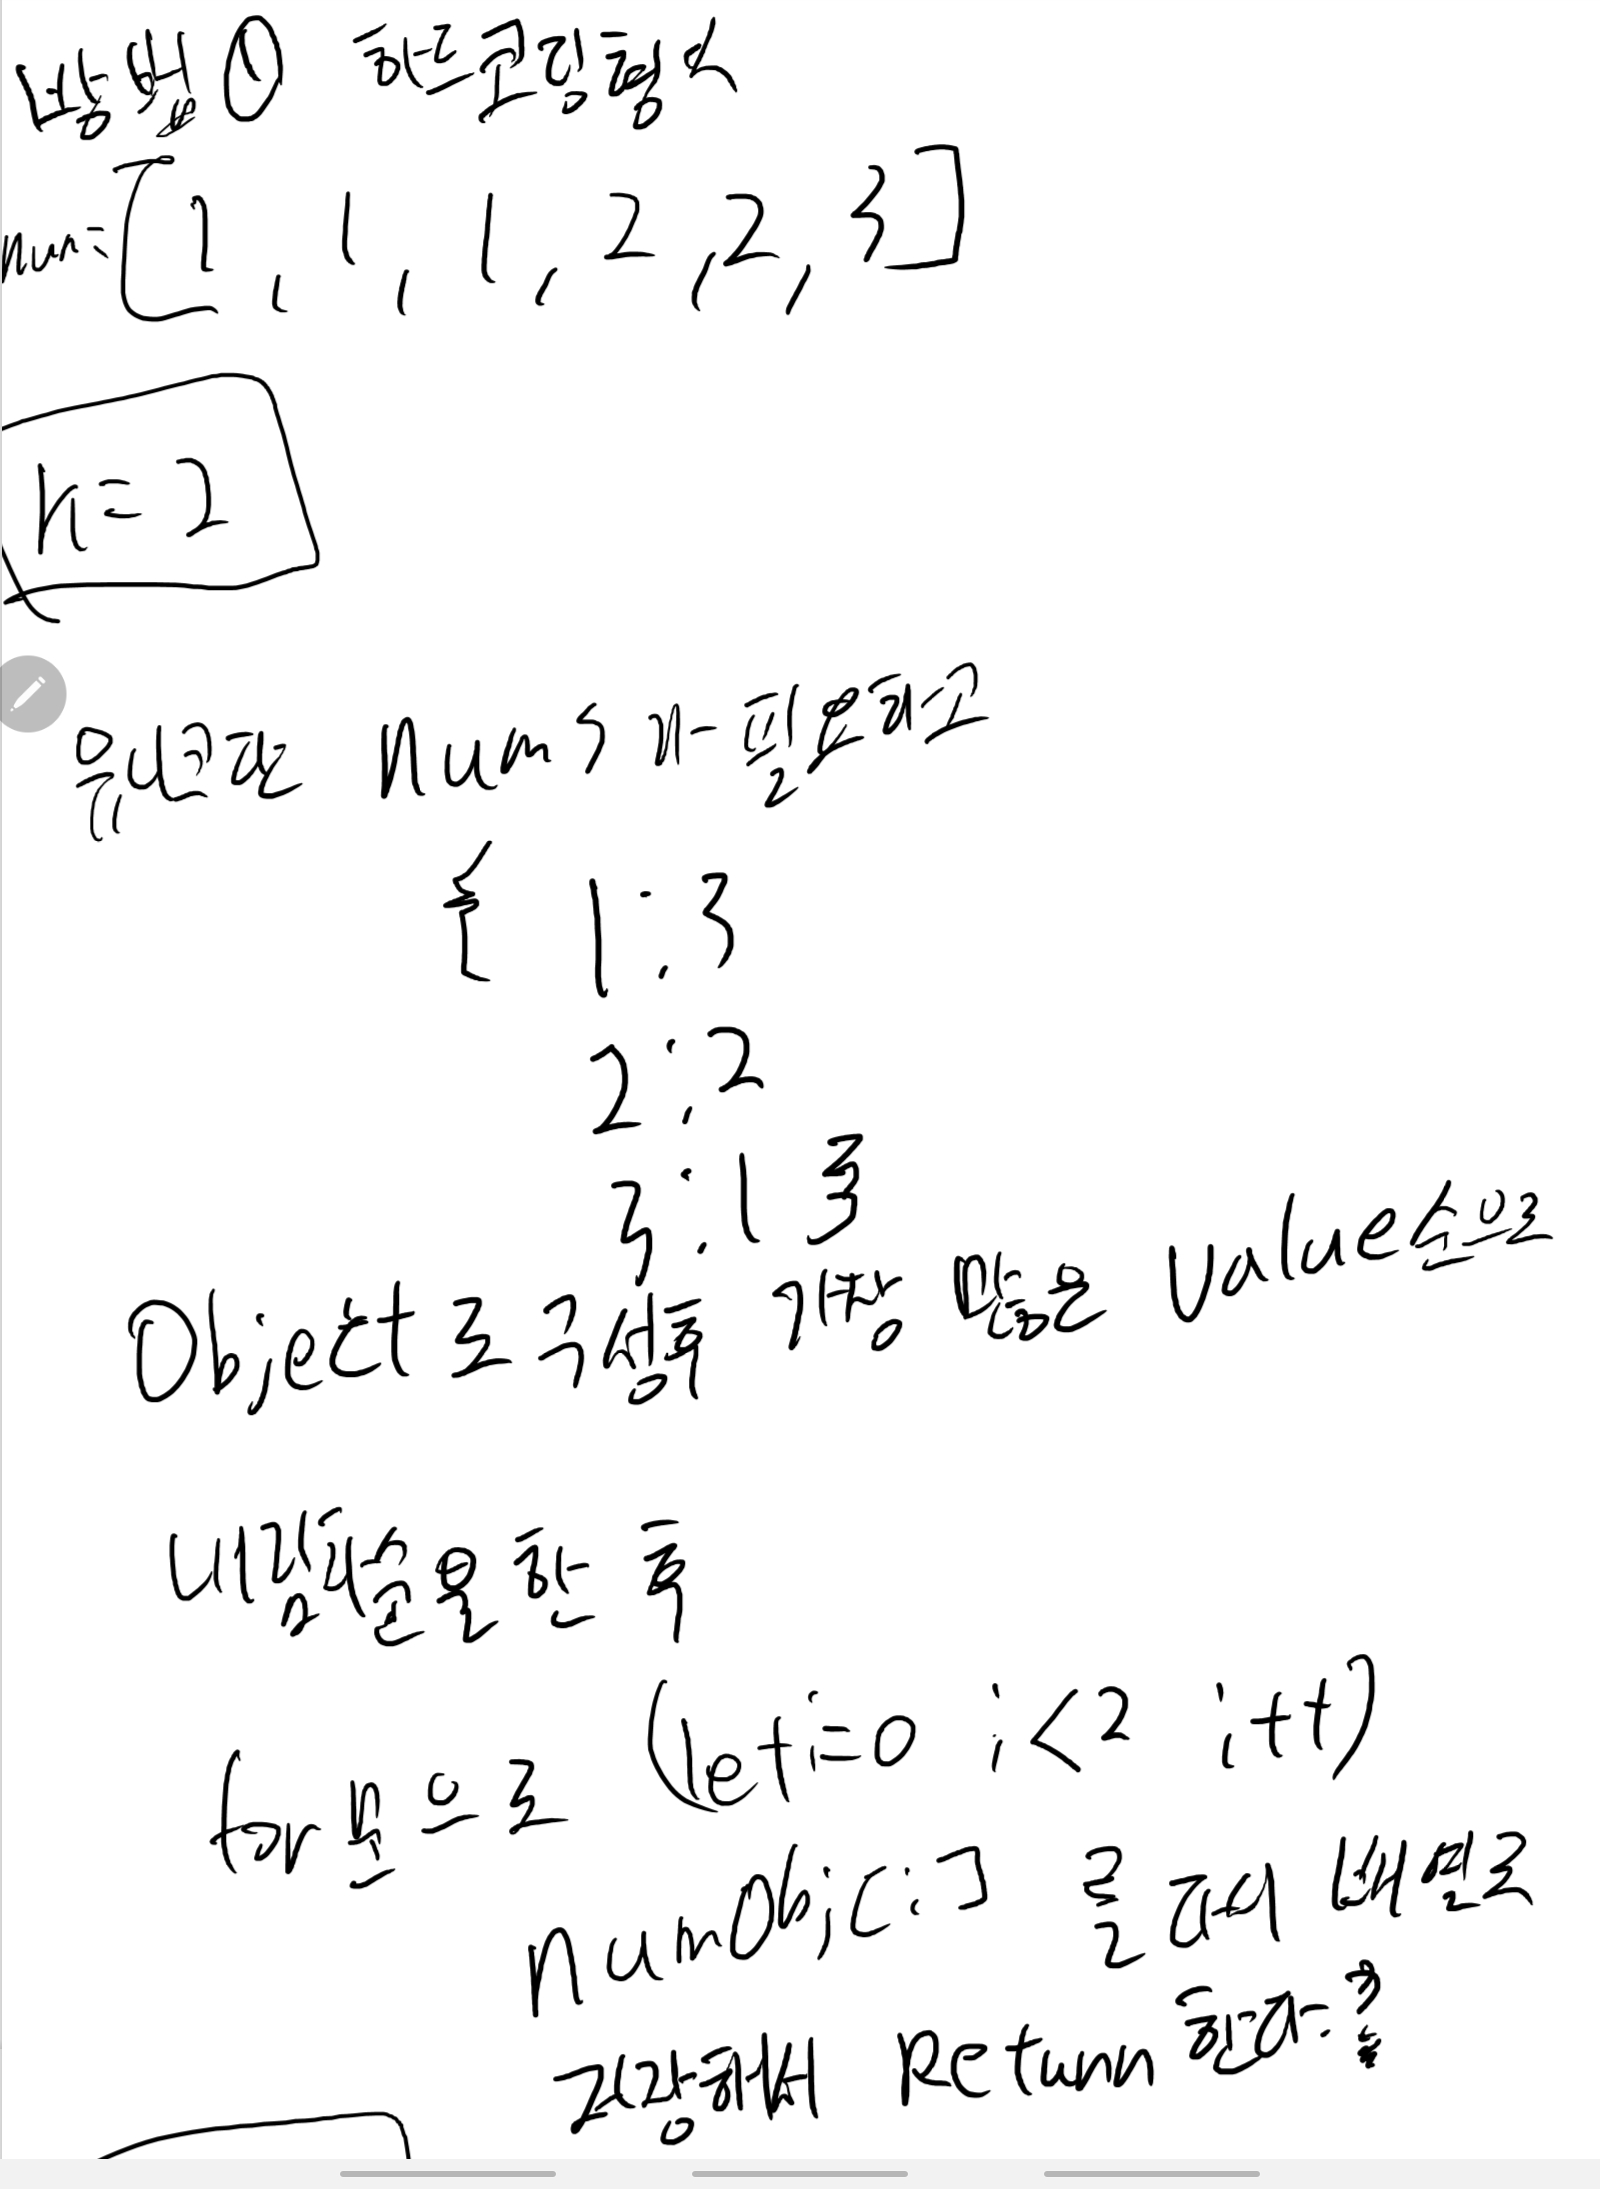 방법① 하드코딩형식
num=[1, 1, 1, 2, 2, 3]
k=2
유니크한 nums가 필요하고
{ 1:3
2:2
3:1 }
Object로 구성후 가장 많은 value순으로
내림차순을 한 후
for문으로 (let i=0 i<2 i++)
numObj[i] 를 새 배열로
저장해서 Return 한다?